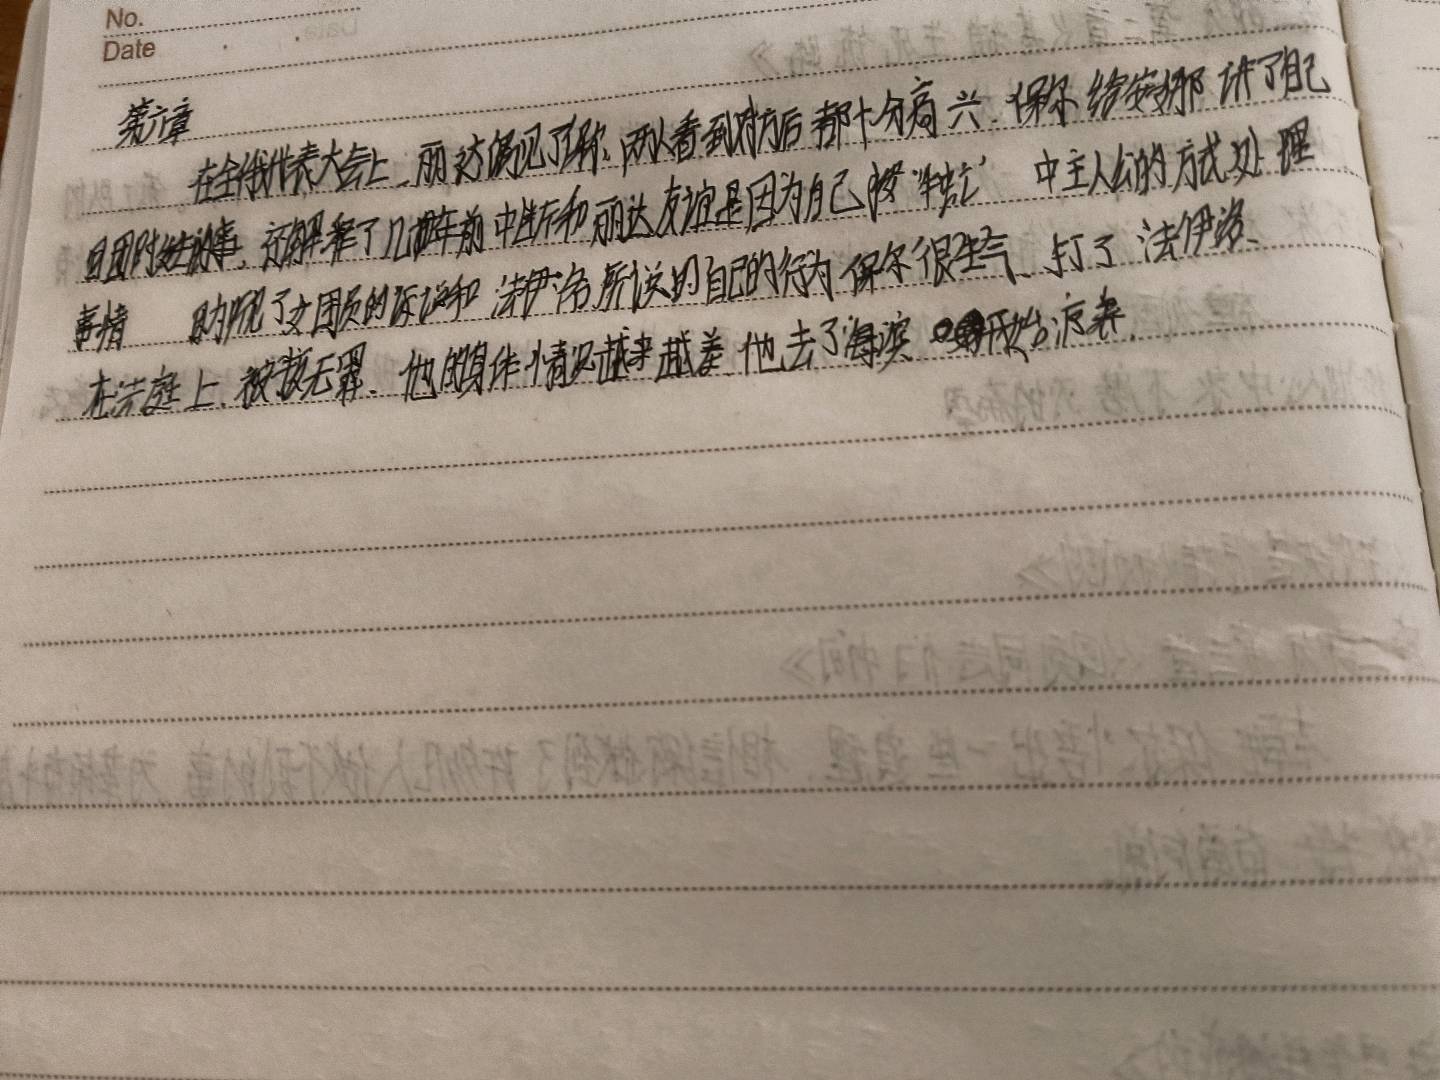 No.
Date
第六章
在全俄代表大会上、丽达偶见了保尔、两人看到对方后都十分高兴、保尔给安娜讲了自己
团时发生的事、还解释了几年前中断和丽达友谊是因为自己按“牛虻”中主人公的方式处理
事情 听了女团员的诉说和法伊洛所说的自己的行为保尔很生气、打了法伊洛、
在法庭上、被放无罪、他的身体情况越来越差、他去了海滨开始疗养.